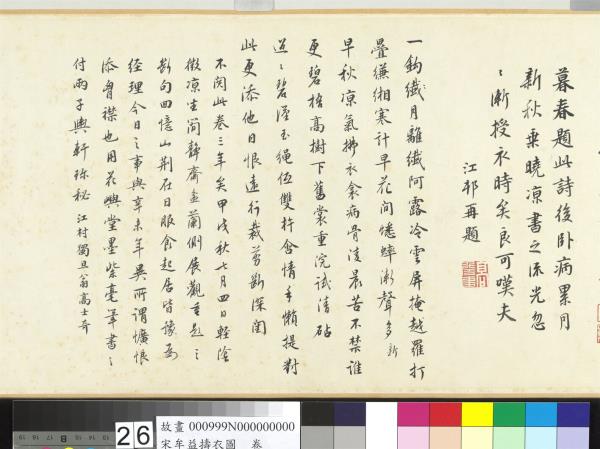 暮春題此詩後卧病累月
新秋乘曉涼書之流光忽
〻漸授衣時矣良可嘆夫
江邨再題
一鉤纖月離纖阿露冷雲屏掩越羅打
疊縑緗寒計早花間蟋蟀漸聲多新
早秋涼氣拂衣衾病骨淩晨苦不禁誰
更碧梧高樹下舊裳重浣試清砧
迢〻碧漢玉繩低雙杵含情手懶提對
此更添他日恨遠行裁剪斷深閨
不閱此卷三年矣甲戌秋七月四日輕陰
微涼坐簡靜齋盆蘭側展觀重題〻
數句回憶山荆在日服食起居皆豫為
經理今日之事與辛未年吳所謂懭悢
添胷襟也用花嶼堂墨紫毫筆書〻
付兩子輿軒珎秘江村獨旦翁高士奇
26
故畫 000999N000000000
宋牟益擣衣圖 卷